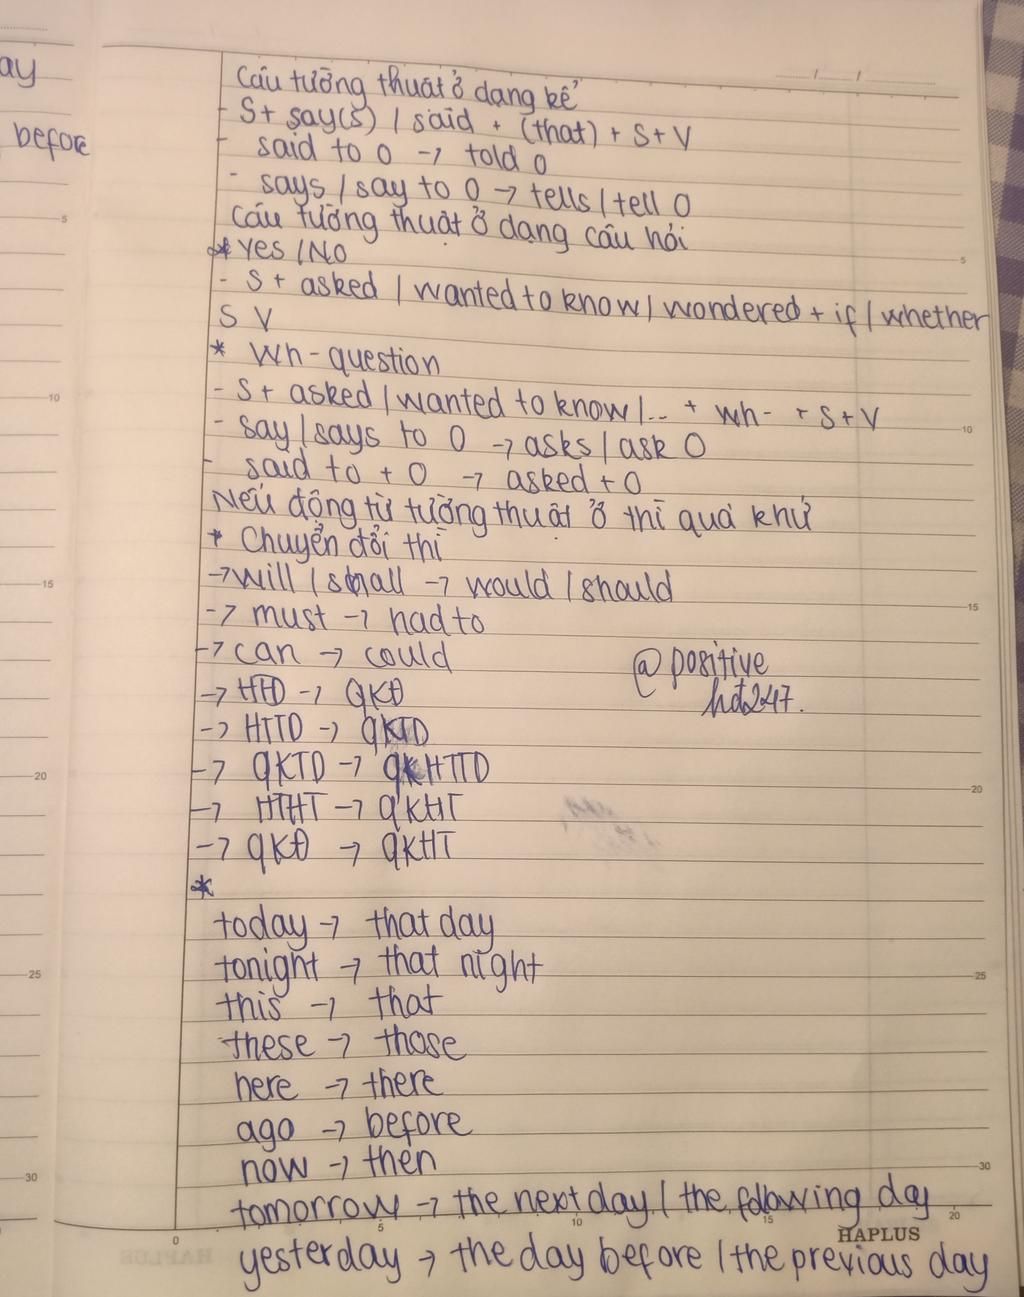 ay
before
Câu tường thuật ở dạng kể
- S+ say(s) / said + (that) + S+V
- said to O → told O
- says / say to O → tells / tell O
Câu tường thuật ở dạng câu hỏi
* Yes / No
- S + asked / wanted to know / wondered + if / whether
S V
* Wh-question
- S+ asked / wanted to know /... + Wh- + S+V
- say / says to O → asks / ask O
- said to + O → asked + O
Nếu động từ tường thuật ở thì quá khứ
* Chuyển đổi thì
→ will / shall → would / should
→ must → had to
→ can → could
@positive
hd247.
→ HTĐ → QKĐ
→ HTTD → QKTD
→ QKTD → QKHTTD
→ HTHT → QKHT
→ QKĐ → QKHT
*
today → that day
tonight → that night
this → that
these → those
here → there
ago → before
now → then
tomorrow → the next day / the following day
HAPLUS
yesterday → the day before / the previous day